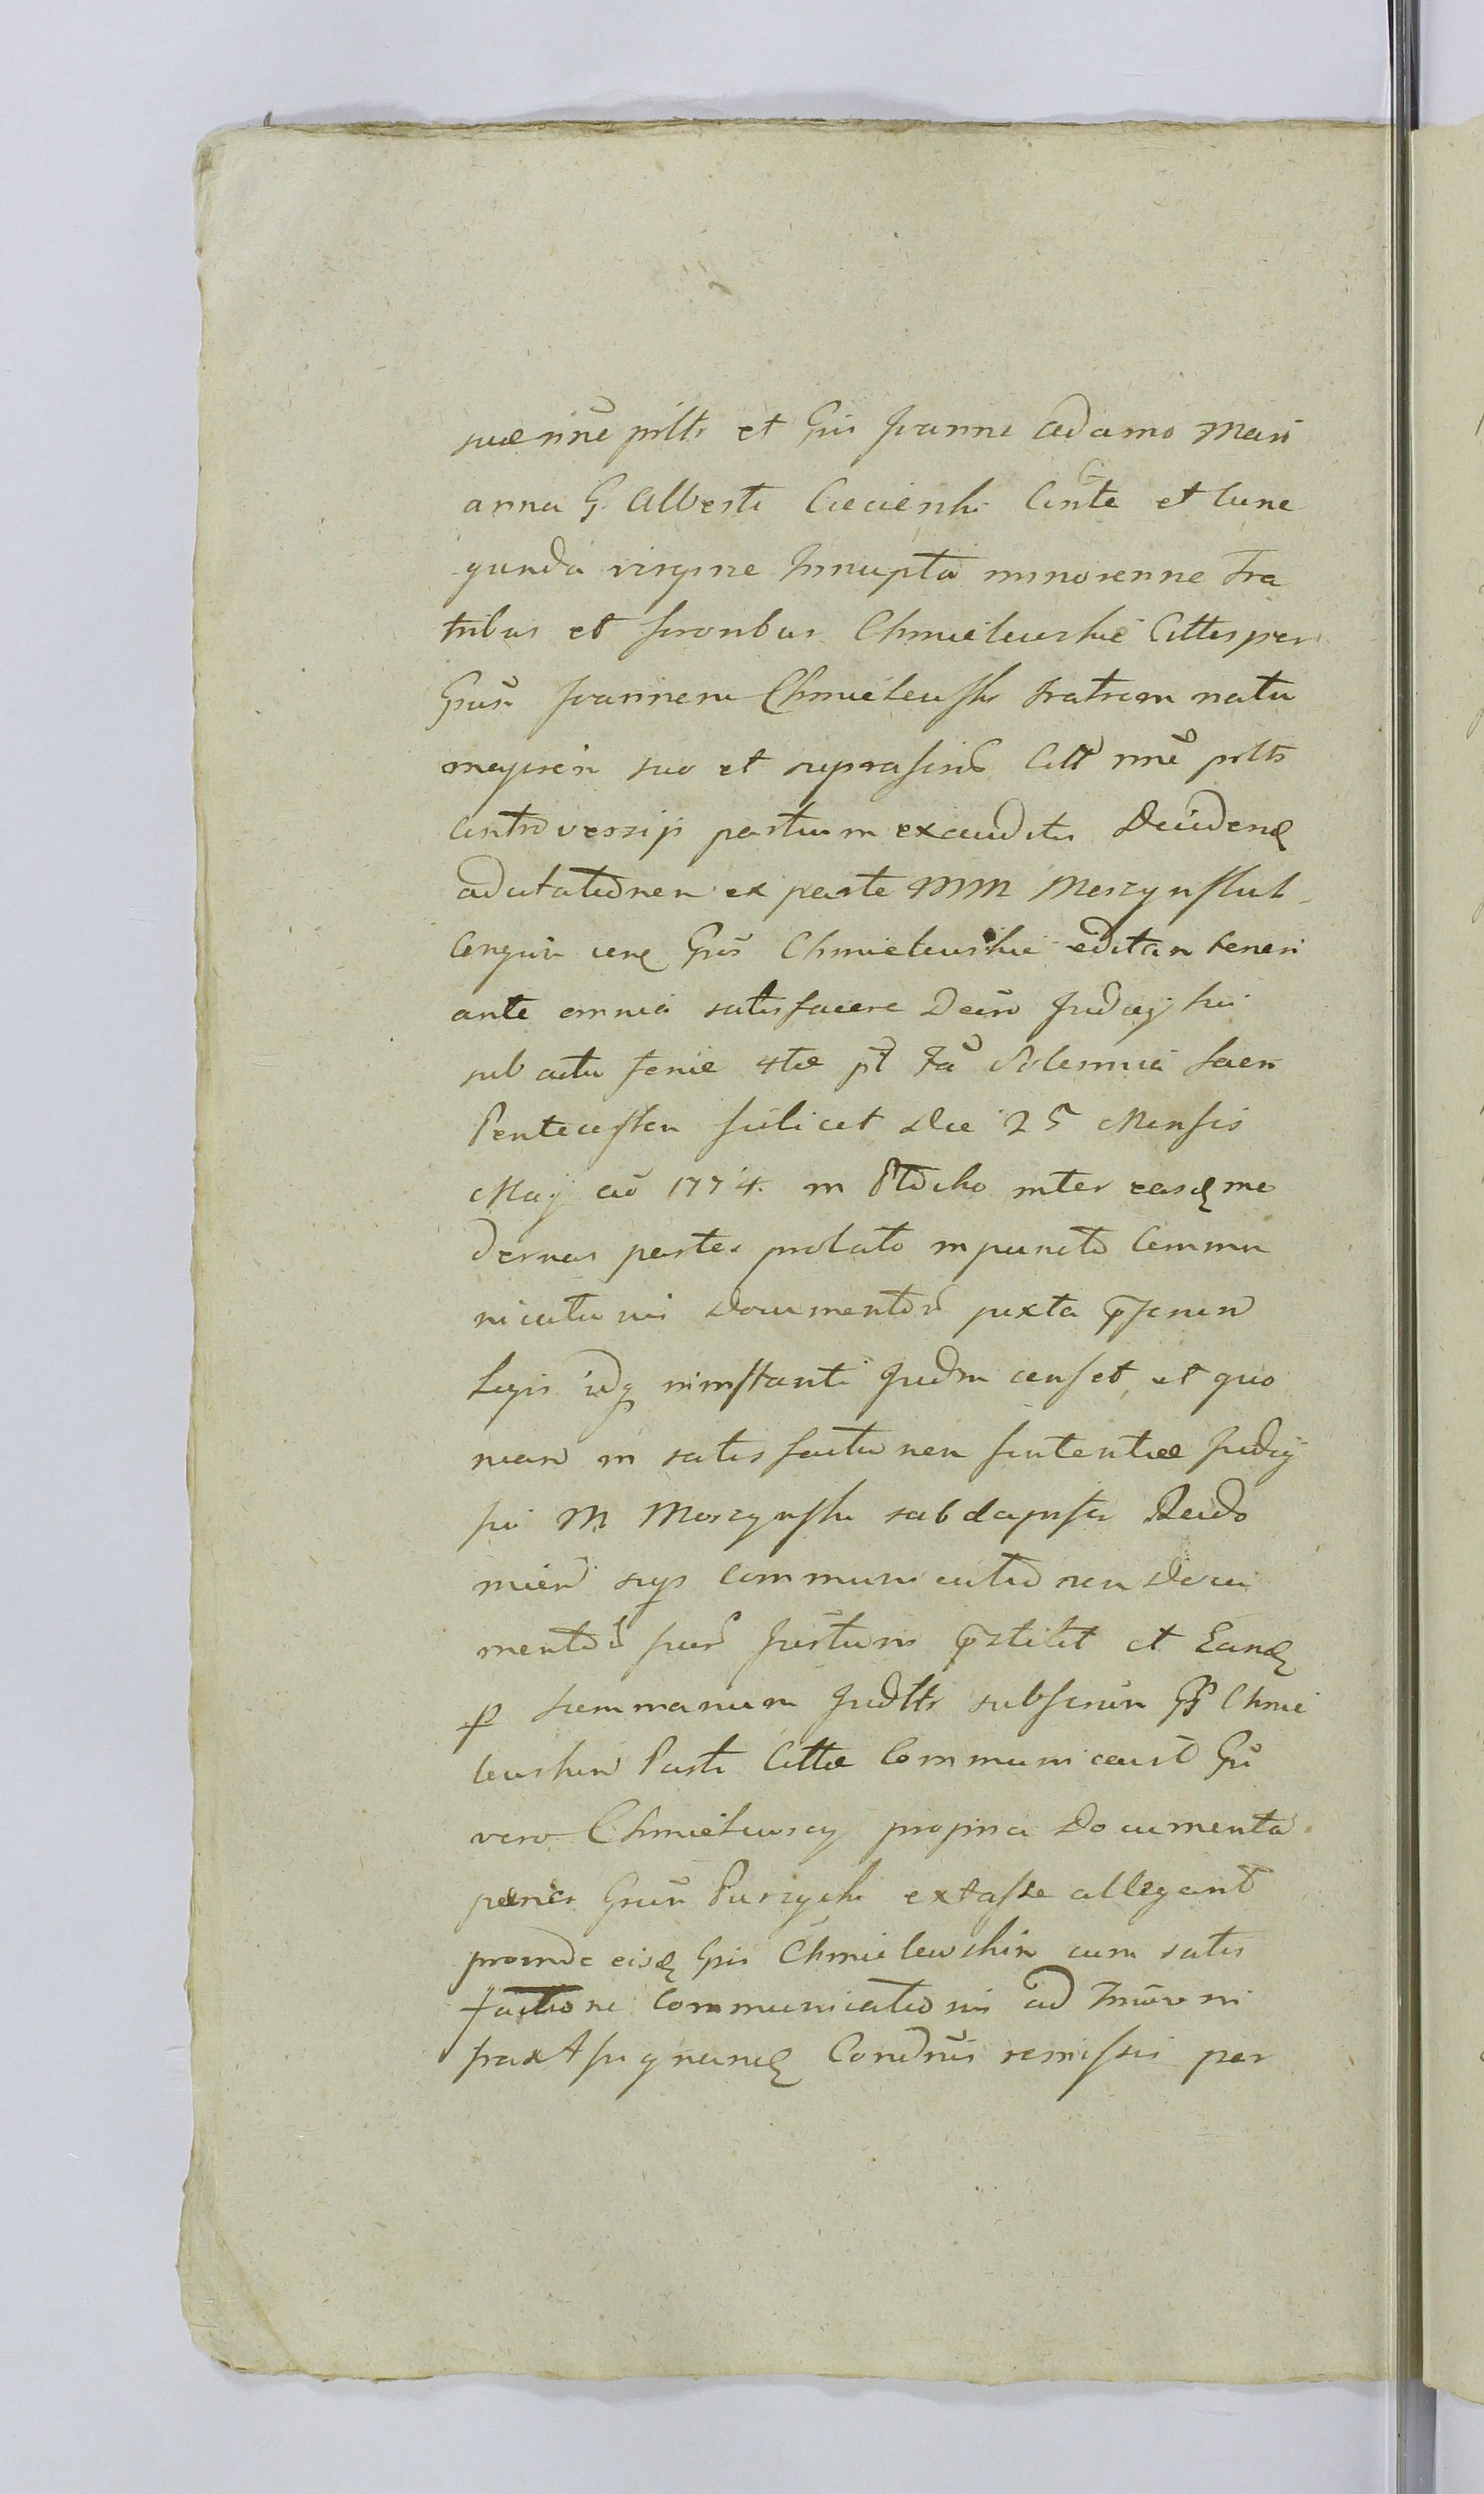 suae nñe psltr et Gñs Joanne Adamo Mari
anna G. Alberti Ciecierski Cnte et Cune
gunda virgine Innupta minorenne Fra
tribus et sororibus Chmielewskie Cittis per
Gsum Joannem Chmielewski Fratrem natu
majorem suo et suprascris Citt nne psltr
Controversijs partium exauditis Decidend
adcitationem ex parte MM Morzynski
Gnos Chmielewskie editam teneri
ante omnia satisfacere Decreto Judicij sui
sub actu feriae 4tae pt Fa Solemnia Sacri
Pentecosten scilicet die 25 Mensis
Maij aõ 1774. in Płocko inter easd mo
dernas partes prolato in puncto Commu
nicationis Documentorũ juxta pscrien
Legis idq in instanti Judm censet, et quo
niam in satisfactionem sententiae Judicij
sui M Morzynski sub dupsa Recdo
mien suijs communicationem Docu
mentorũ suorũ Justum pstitit et Eand
p summarium Judttr subscriun Chmie
lewskim Parti Cittae Communicavit Gñi
vero Chmielewscy propria Documenta
penes Gsum Purzycki extasse allegant
proinde eisd Gñis Chmielewskim cum satis
factione Communicationis ad
praxt signand Condnis remissis per